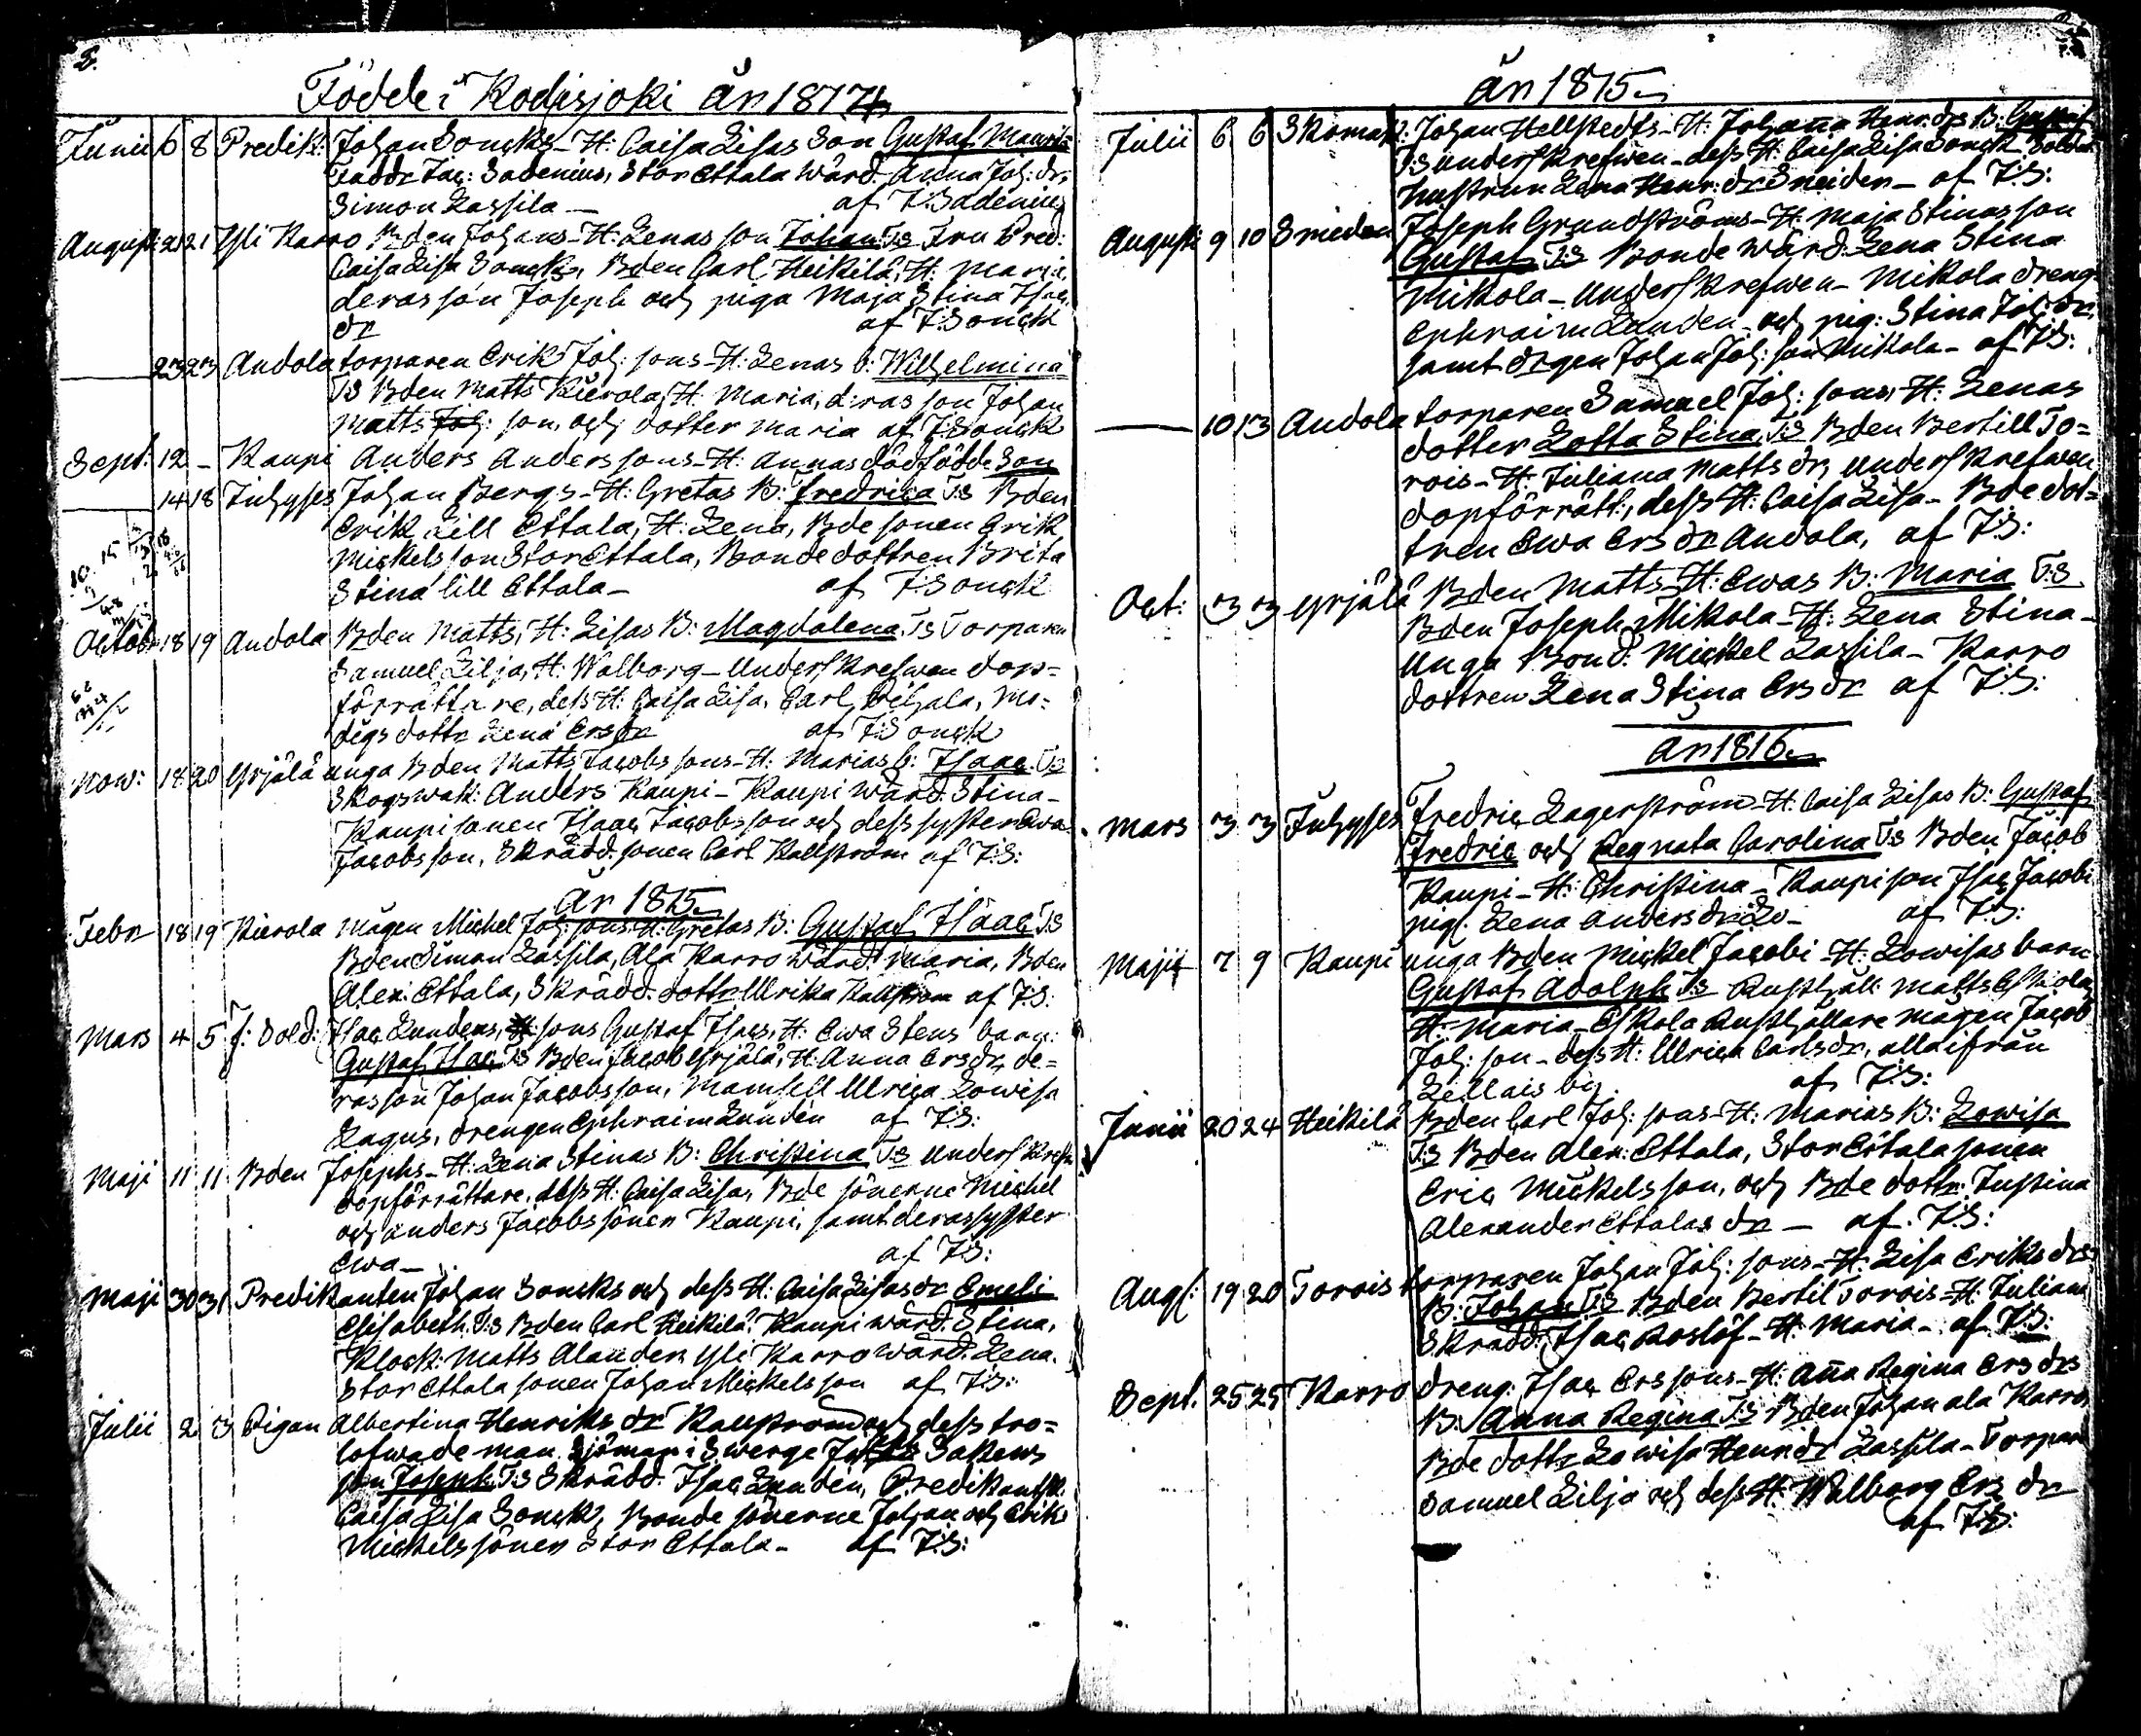 8.
Födde i Kodisjoki år 1814
Junii 6 8 Predik: Johan Soncks H: Caisa Lisas Son Gustaf Maurits
Faddr Jac: Sadenius, Stor Ettala wärd. Anna Joh: dr,
Simon Lassila — af J: Sadenius
August: 21 Yli Karro Bden Johans H: Lenas son Johan T:s Fru Pred:
Caisa Lisa Sonck, Bden Carl Heikilä, H: Maria,
deras son Joseph och piga Maja Stina Isac:
dr af J: Sonck
23 23 Andola torparen Erik Joh: sons H: Lenas b: Wilhelmina
T:s Bden Matts Kierola, H: Maria, d:ras son Johan
Matts son, och dotter Maria af J: Sonck
Sept: 12 – Kaupi Anders Anderssons H: Annas dödfödde Son
14 18 Juhgsjes Johan Bergs H: Gretas B: Fredrika T:s Bden
Erik Lill Ettala, H: Lena, Bde sonen Erik
Mickelsson Stor Ettala, Bonde dottren Brita
Stina lill Ettala — af J: Sonck
Octobr 18 19 Andola Bden Matts, H: Lisas B: Magdalena T:s Torparen
Samuel Lilja, H: Walborg — Underskrefwen dop=
förrättare, dess H: Caisa Lisa, Carl
dottr Lena Ersdr af J: Sonck
Now: 18 20 Yrjälä unga Bden Matts Jacobssons H: Marias b: Isaac T:s
Skogswakt: Anders Kaupi — Kaupi wärd. Stina —
Kaupi sonen Isaac Jacobsson och dess syster Ewa
Jacobsson, Skrädd. sonen Carl Kallström af J:S:
år 1815
Febr 18 19 Kierola mågen Mickel Joh: sons H: Gretas B: Gustaf Isaac T:s
Bden Simon Lassila, Ala Karro wärd: Maria, Bden
Alex: Ettala, Skrädd. dottr Ulrika Kallström af J:S:
Mars 4 5 f: Sold: Isac Lundens, sons Gustaf Isacs, H: Ewa Stens barn:
Gustaf Isac T:s Bden Jacob Yrjälä, H: Anna Ersdr, de=
ras son Johan Jacobsson, Mamsell Ulrica Lowisa
Lagus, drengen Ephraim Lundén af J:S:
Maji 11 11 Bden Josephs H: Lena Stinas B: Christina T:s Underskrefn
dopförrättare, dess H: Caisa Lisa, Bde sönerne Michel
och Anders Jacobssöner Kaupi, samt deras syster
Ewa — af J:S:
Maji 30 31 Predikanten Johan Soncks och dess H: Caisa Lisas dr Emeli
Elisabeth T:s Bden Carl Heikilä, Kaupi wärd. Stina,
Klock: Matts Alander, Yli Karro wärd. Lena.
Stor Ettala sonen Johan Mickelsson af J:S:
Julii 2 3 Pigan Albertina Henriks dr Kallström och dess tro=
lofwade man, sjöman i Swerge Sakeus
son Joseph T:s Skrädd. Isac Lunden, Predikantsk.
Caisa Lisa Sonck, Bonde sönerne Johan och Erik
Mickelssöner Stor Ettala — af J:S:
år 1815
Julii 6 6 Skomak: Johan Hellstedts H: Johanna Henr: drs B: Gustaf
T:s Underskrefwen — dess H: Caisa Lisa Sonck Soldat
hustrun Lena Henr: dr Sneider — af J:S:
August: 9 10 Smeden Joseph Grundströms H: Maja Stinas son
Gustaf T:s Bonde wärd. Lena Stina
Mikola — Underskrefwen — Mikola dreng
Ephraim Lunden och pig: Stina Joh: dr,
samt drgen Johan Joh: son Mikola — af J:S:
10 13 Andola torparen Samuel Joh: sons, H: Lenas
dotter Lotta Stina T:s Bden Bertill To=
rois H: Juliana Matts dr, Underskrefwen
dopförrätt:, dess H: Caisa Lisa — Bde dot=
tren Ewa Ers dr Andola, af J:S:
Oct: 3 3 Yrjälä Bden Matts H: Ewas B: Maria T:S
Bden Joseph Mikola H: Lena Stina —
Unga Bond: Mickel Lassila — Karro
dottren Lena Stina Ers dr af J:S:
år 1816
Mars 3 3 Juhgsjes Fredric Lagerström H: Caisa Lisas B: Gustaf
Fredric och Regnata Carolina T:s Bden Jacob
Kaupi H: Christina — Kaupi son Isac Jacobi
pig: Lena Anders dr — af J:S:
Maji 7 9 Kaupi unga Bden Mickel Jacobi H: Lowisas barn
Gustaf Adolph T:s Rusthåll: Matts Eskola,
H: Maria — Eskola Rusthållare mågen Jacob
Joh: son — dess H: Ulrica Carlsdr, alla ifrån
Lellais by. af J:S:
Junii 20 24 Heikilä Bden Carl Joh: sons H: Marias B: Lowisa
T:s Bden Alex: Ettala, Stor Ettala sonen
Eric Mickelsson, och Bde dottr: Justina
Alexander Ettalas dr — af J:S:
Aug: 19 20 Torois torparen Johan Joh: sons H: Lisa Eriks drs
B: Johan T:s Bden Bertil Torois H: Juliana
Skrädd: Isac Roslöf H: Maria — af J:S:
Sept. 25 25 Karro dreng: Isac Ers sons H: Anna Regina Ers drs
B: Anna Regina T:s Bden Johan ala Karro,
Bde dottr Lowisa Henr dr Lassila — Torpare
Samuel Lilja och dess H: Walborg Ers dr
af J:S: